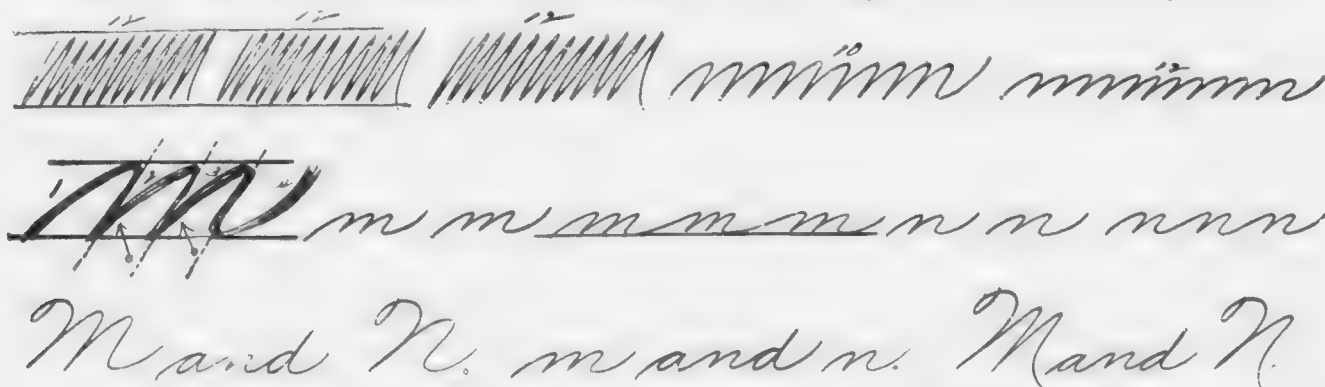 12 12 12 10 12
1 2 3 4 m m m m m n n n n n
M and N. m and n. M and N.